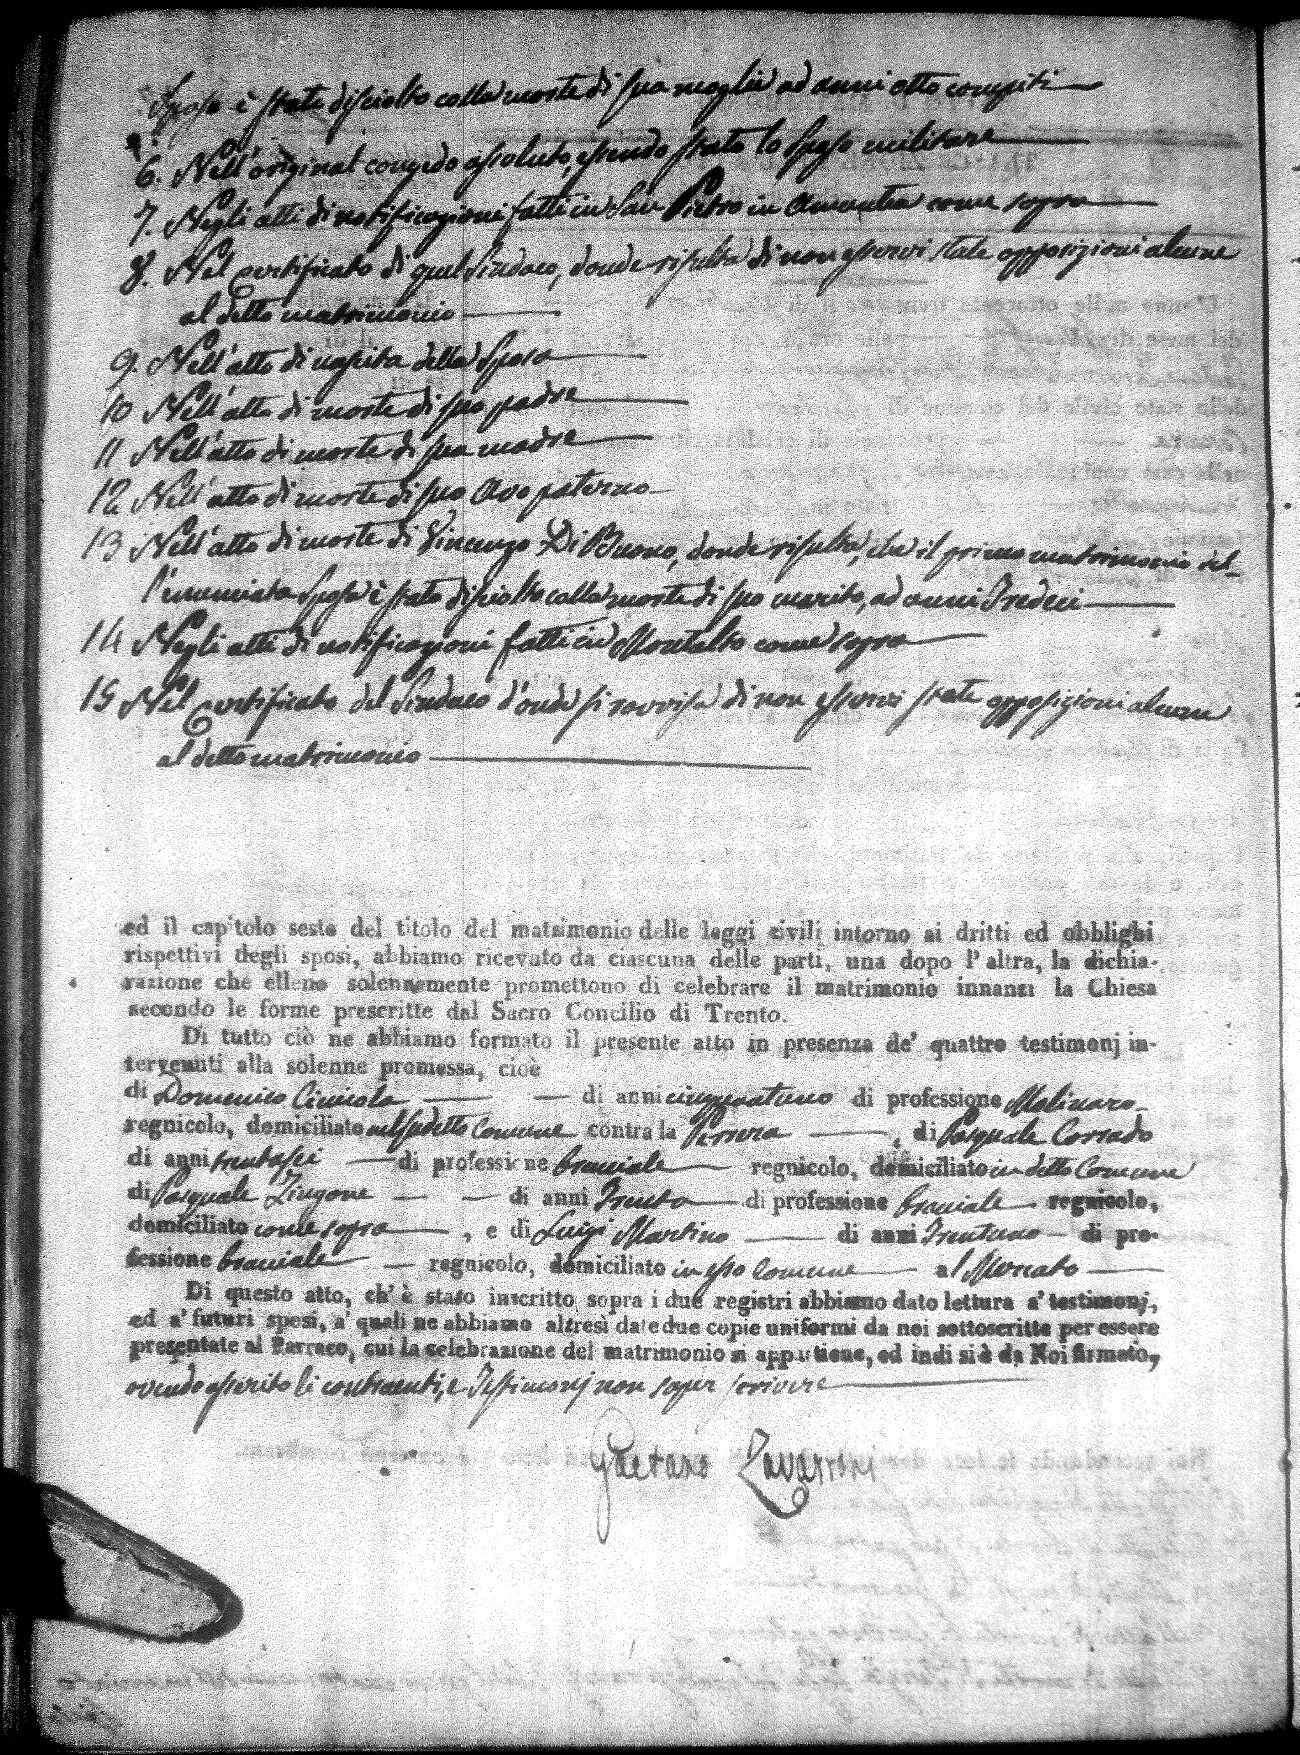 Sposo è stato disciolto colla morte di sua moglie ad anni otto compiti
6. Nell'original congedo assoluto, essendo stato lo Sposo militare
7. Negli atti di notificazioni fatti in San Pietro in Amantea come sopra
8. Nel certificato di quel Sindaco, donde risulta di non esservi state opposizioni alcune
al detto matrimonio
9. Nell'atto di nascita della Sposa
10 Nell'atto di morte di suo padre
11 Nell'atto di morte di sua madre
12 Nell'atto di morte di suo Avo paterno
13 Nell'atto di morte di Vincenzo Di Buono, donde risulta, che il primo matrimonio del-
l'enunciata Sposa è stato disciolto colla morte di suo marito, ad anni Tredeci
14 Negli atti di notificazioni fatti in Montalto come sopra
15 Nel Certificato del Sindaco d'onde si ravvisa di non esservi state opposizioni alcune
al detto matrimonio
ed il capitolo sesto del titolo del matrimonio delle leggi civili intorno ai dritti ed obblighi
rispettivi degli sposi, abbiamo ricevuto da ciascuna delle parti, una dopo l'altra, la dichia-
razione che elleno solennemente promettono di celebrare il matrimonio innanzi la Chiesa
secondo le forme prescritte dal Sacro Concilio di Trento.
Di tutto ciò ne abbiamo formato il presente atto in presenza de' quattro testimonj in-
tervenuti alla solenne promessa, cioè
di Domenico di anni cinquantuno di professione Molinaro
regnicolo, domiciliato nel sudetto Comune contra la Perrera, di Pasquale Corrado
di anni trentasei di professione bracciale regnicolo, domiciliato in detto Comune
di Pasquale Zingone di anni Trenta di professione bracciale regnicolo,
domiciliato come sopra, e di Luigi Martino di anni Trentuno di pro-
fessione bracciale regnicolo, domiciliato in esso Comune al Mercato
Di questo atto, ch'è stato inscritto sopra i due registri abbiamo dato lettura a' testimonj,
ed a' futuri sposi, a' quali ne abbiamo altresì date due copie uniformi da noi sottoscritte per essere
presentate al Parroco, cui la celebrazione del matrimonio si appartiene, ed indi si è da Noi firmato,
avendo asserito li contraenti, e Testimonj non saper scrivere
Gaetano Zavarroni